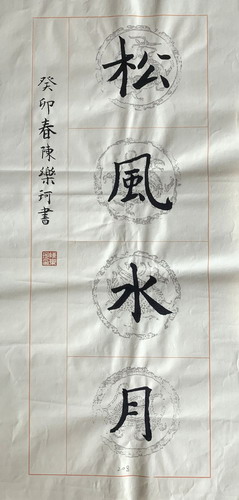 松風水月
癸卯春陳樂珂書
208